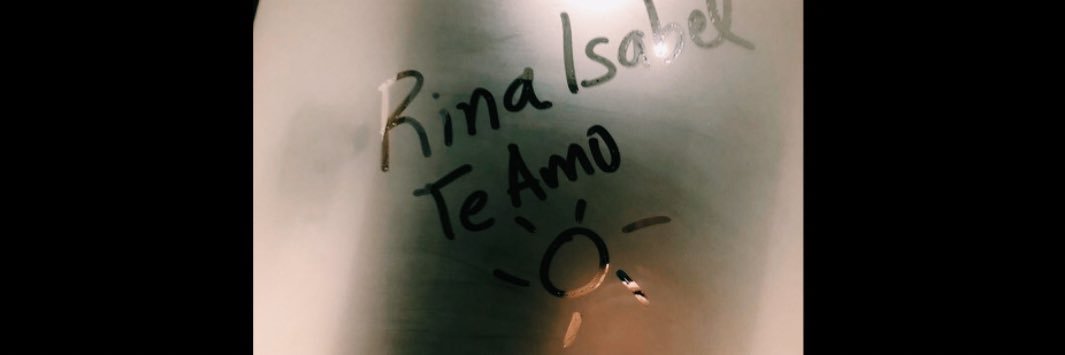 Rina Isabel
Te Amo